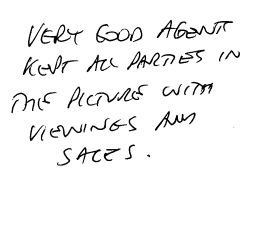 VERY GOOD AGENT
KEPT ALL PARTIES IN
THE PICTURE WITH
VIEWINGS AND
SALES.